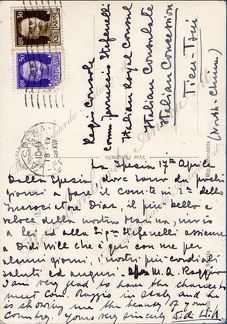 Regio Console
Comm. Ferruccio Stefenelli
Italian Royal Consul
Italian Consulate
Italian Concession
Tien-Tsin
(North-China)
La Spezia 17th Aprile
Dalla Spezia dove sono da pochi
giorni a fare il com.te in 2a della
Dias, il più bello e
veloce della nostra Marina, invio
a lei ed alla Sig.ra Stefenelli assieme
a Didi Will che è qui con me per
alcuni giorni, i nostri più cordiali
saluti ed auguri. M. A. Raggio
I am very glad to have the chance to
meet Com. Raggio in Italy and he
is showing me the beauty of your
Country. Yours very sincerely Didi Will